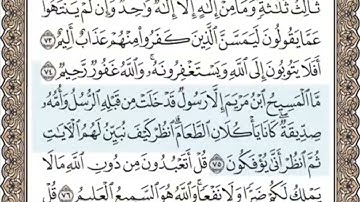 ثَالِثُ ثَلَٰثَةٍ وَمَا مِنْ إِلَٰهٍ إِلَّآ إِلَٰهٌ وَٰحِدٌ وَإِن لَّمْ يَنتَهُوا۟
عَمَّا يَقُولُونَ لَيَمَسَّنَّ ٱلَّذِينَ كَفَرُوا۟ مِنْهُمْ عَذَابٌ أَلِيمٌ ٧٣
أَفَلَا يَتُوبُونَ إِلَى ٱللَّهِ وَيَسْتَغْفِرُونَهُۥ وَٱللَّهُ غَفُورٌ رَّحِيمٌ ٧٤
مَّا ٱلْمَسِيحُ ٱبْنُ مَرْيَمَ إِلَّا رَسُولٌ قَدْ خَلَتْ مِن قَبْلِهِ ٱلرُّسُلُ وَأُمُّهُۥ
صِدِّيقَةٌ كَانَا يَأْكُلَانِ ٱلطَّعَامَ ٱنظُرْ كَيْفَ نُبَيِّنُ لَهُمُ ٱلْـَٔايَٰتِ
ثُمَّ ٱنظُرْ أَنَّىٰ يُؤْفَكُونَ ٧٥ قُلْ أَتَعْبُدُونَ مِن دُونِ ٱللَّهِ مَا لَا
يَمْلِكُ لَكُمْ ضَرًّا وَلَا نَفْعًا وَٱللَّهُ هُوَ ٱلسَّمِيعُ ٱلْعَلِيمُ ٧٦